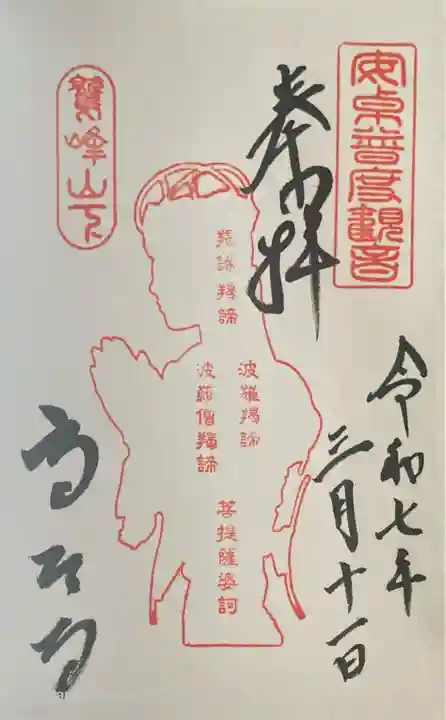 安卓普度觀音
奉拝
令和七年
三月十一日
羯諦羯諦
波羅羯諦
波羅僧羯諦
菩提薩婆訶
鷲峰山下
高台寺